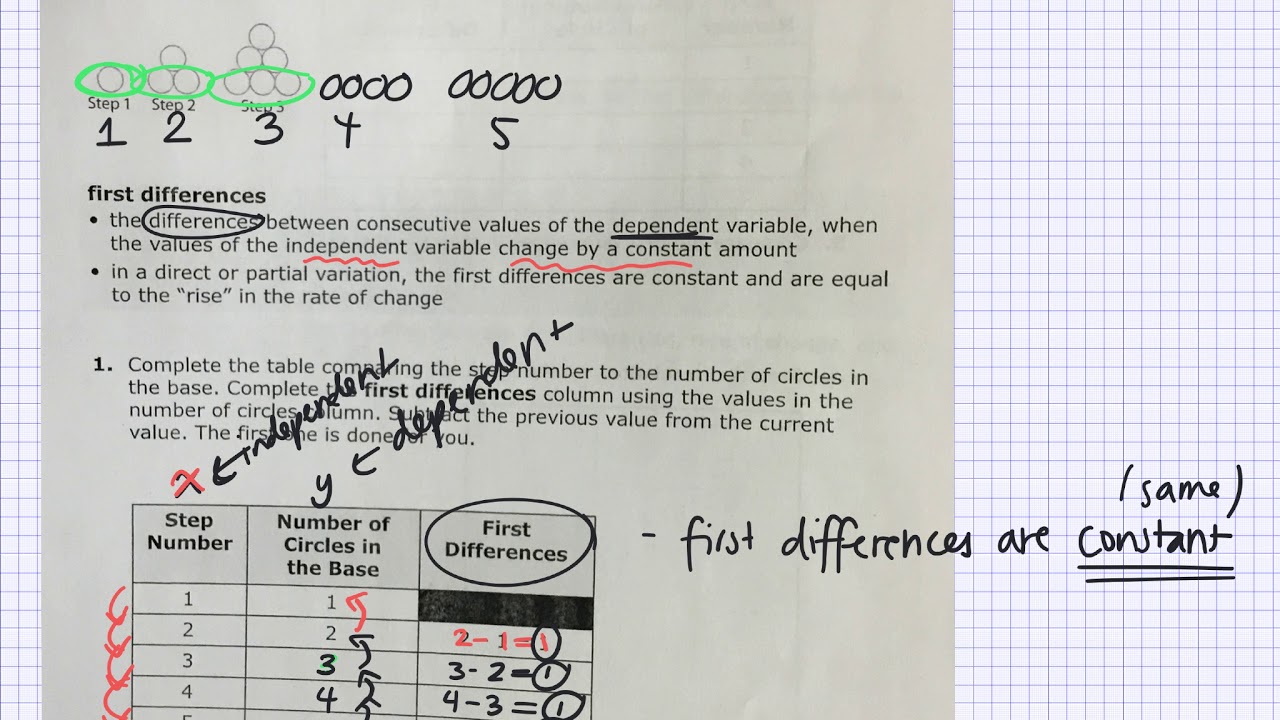 Step 1 Step 2 Step 3
1 2 3 4 5
first differences
• the differences between consecutive values of the dependent variable, when
the values of the independent variable change by a constant amount
• in a direct or partial variation, the first differences are constant and are equal
to the “rise” in the rate of change
1. Complete the table comparing the step number to the number of circles in
the base. Complete the first differences column using the values in the
number of circles column. Subtract the previous value from the current
value. The first one is done for you.
x ← independent
y ← dependent
Step Number
Number of Circles in the Base
First Differences
(same)
- first differences are constant
1 1
2 2 2 - 1 = 1
3 3 3 - 2 = 1
4 4 4 - 3 = 1